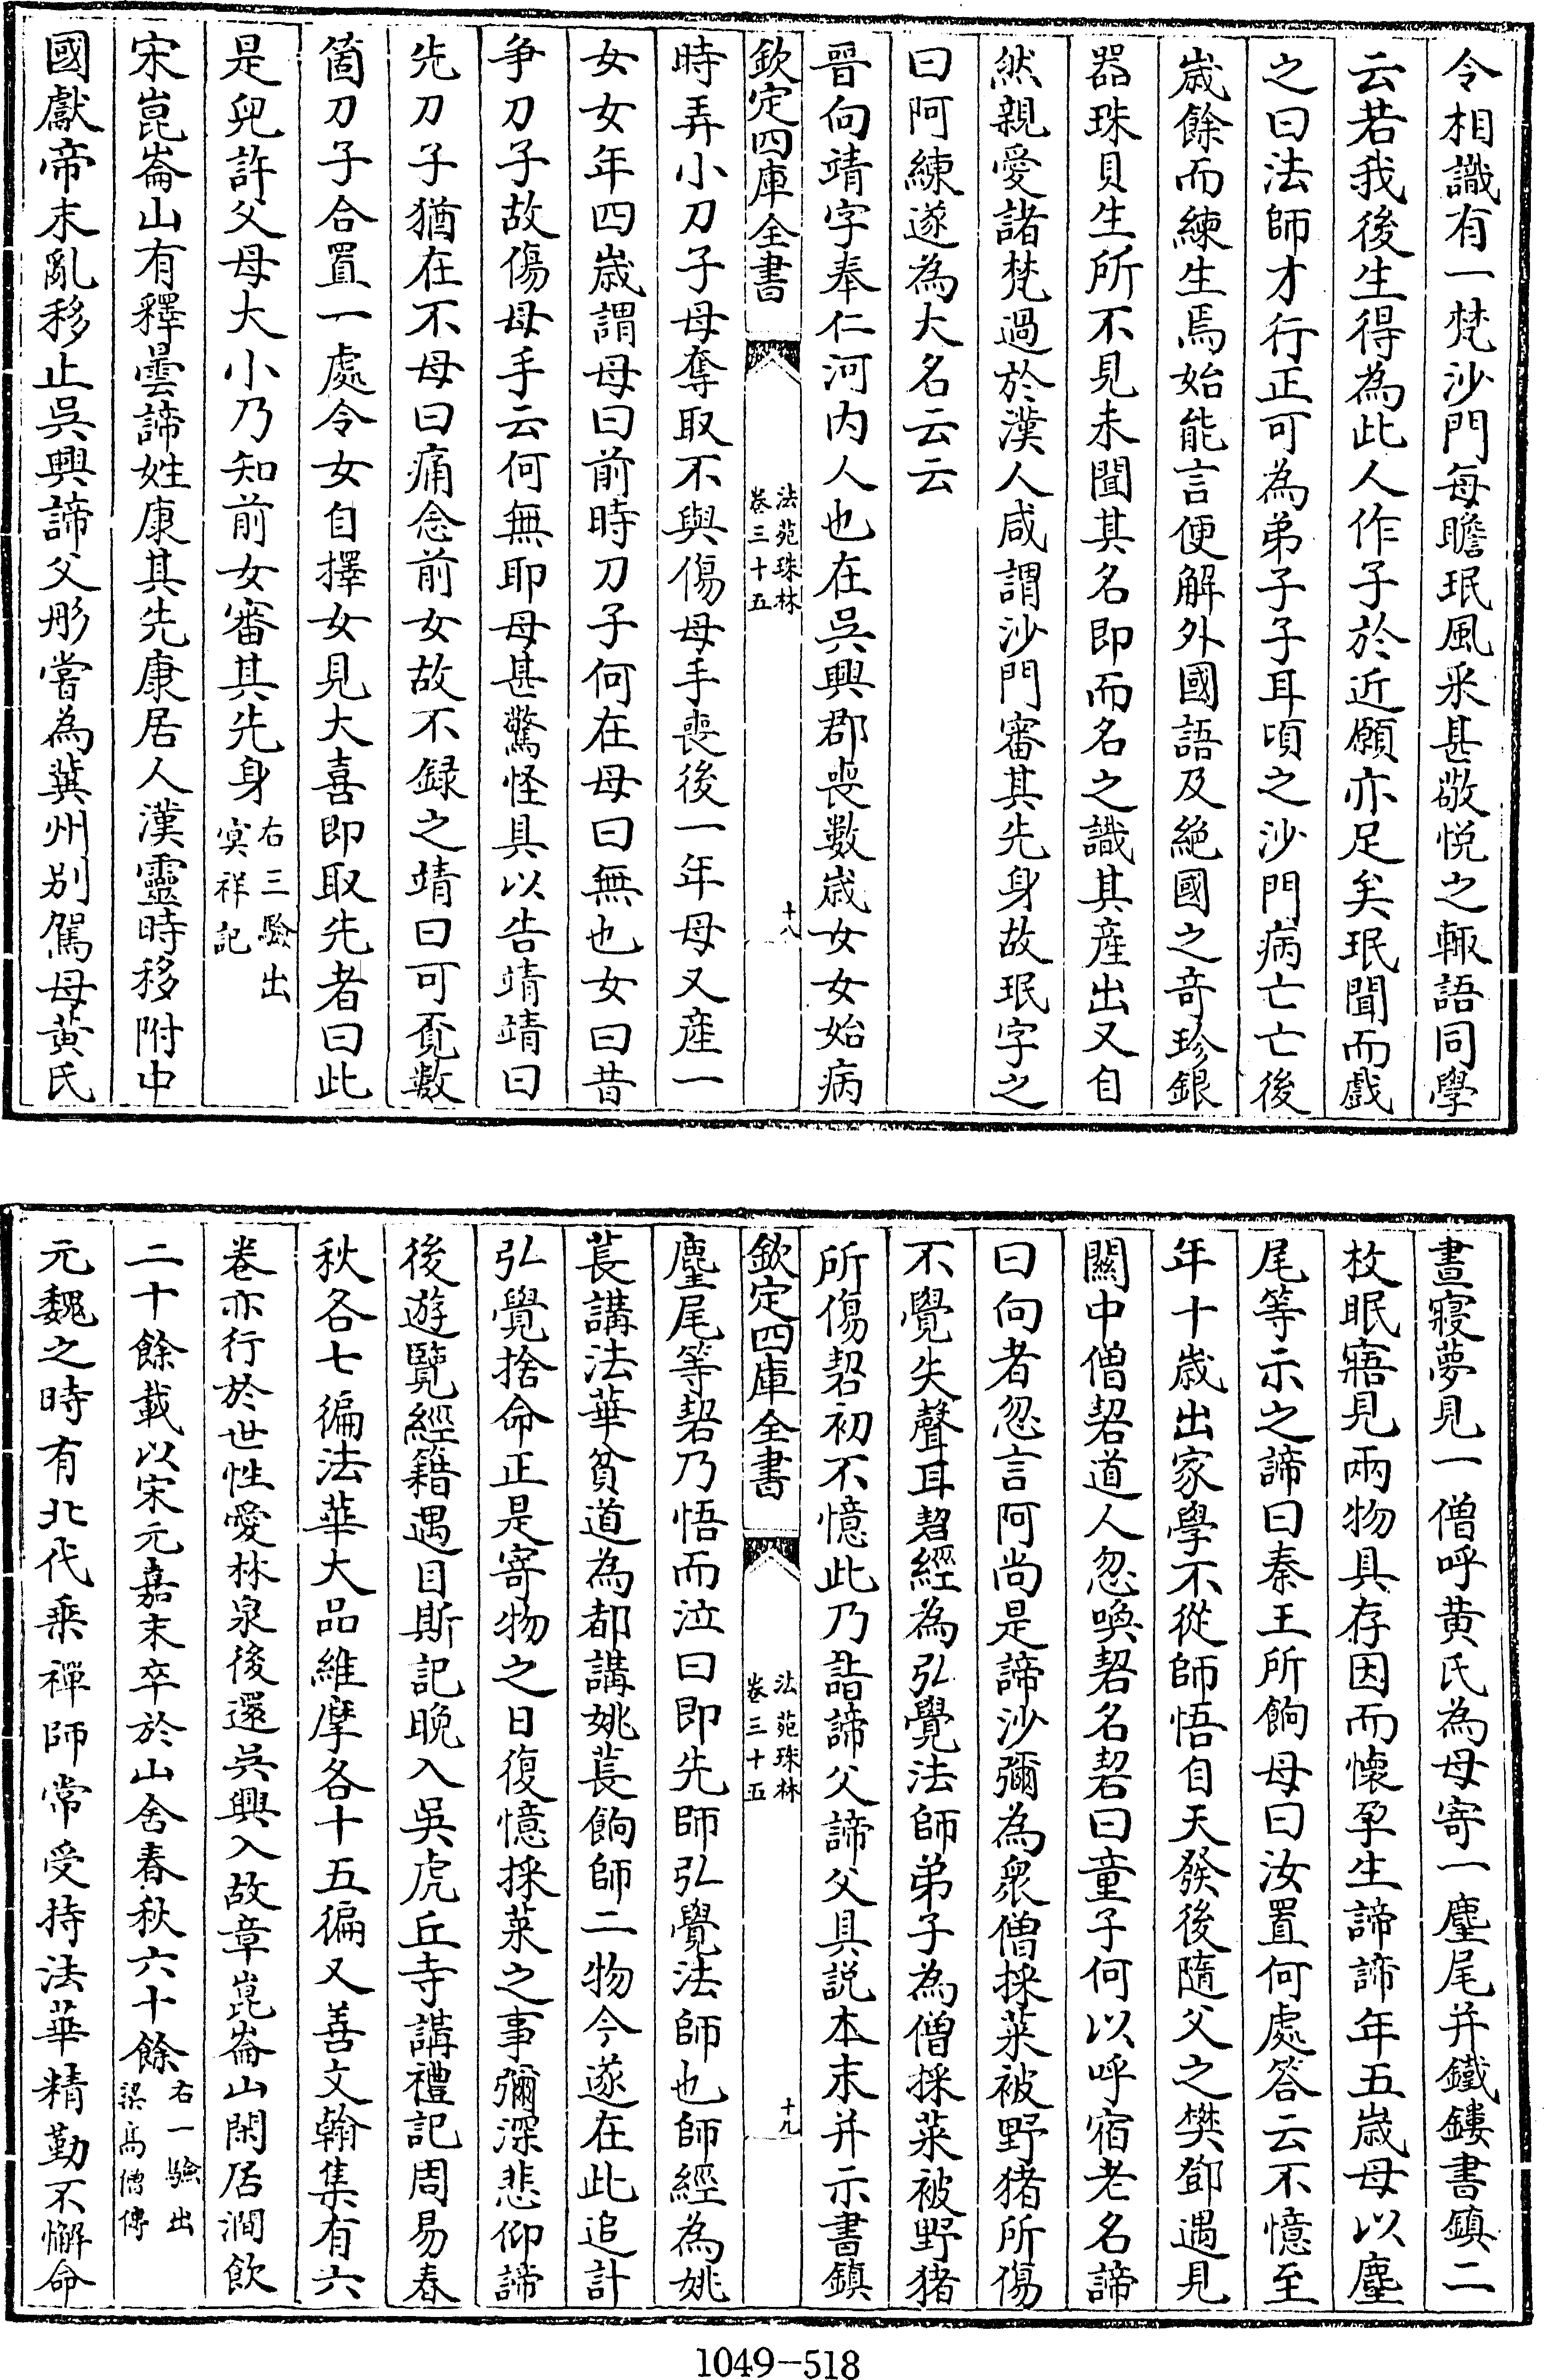 令相識有一梵沙門每瞻珉風采甚敬悅之輙語同學
云若我後生得為此人作子於近願亦足矣珉聞而戲
之曰法師才行正可為弟子子耳頃之沙門病亡亡後
嵗餘而練生焉始能言便解外國語及絶國之奇珍銀
器珠貝生所不見未聞其名即而名之識其産出又自
然親愛諸梵過於漢人咸謂沙門審其先身故珉字之
曰阿練遂為大名云云
晉向靖字奉仁河内人也在吳興郡喪數嵗女女始病
欽定四庫全書
法苑珠林
卷三十五
十八
時弄小刀子母奪取不與傷母手喪後一年母又産一
女女年四嵗謂母曰前時刀子何在母曰無也女曰昔
争刀子故傷母手云何無耶母甚驚怪具以告靖靖曰
先刀子猶在不母曰痛念前女故不録之靖曰可覓數
箇刀子合置一處令女自擇女見大喜即取先者曰此
是兒許父母大小乃知前女審其先身
右三驗出
㝠祥記
宋崑崙山有釋曇諦姓康其先康居人漢靈時移附中
國獻帝末亂移止吳興諦父彤嘗為冀州别駕母黄氏
晝寢夢見一僧呼黄氏為母寄一麈尾并鐵鏤書鎮二
枚眠寤見兩物具存因而懷孕生諦諦年五嵗母以麈
尾等示之諦曰秦王所餉母曰汝置何處答云不憶至
年十嵗出家學不從師悟自天發後隨父之樊鄧遇見
關中僧䂮道人忽喚䂮名䂮曰童子何以呼宿老名諦
曰向者忽言阿尚是諦沙彌為衆僧採菜被野猪所傷
不覺失聲耳䂮經為弘覺法師弟子為僧採菜被野猪
所傷䂮初不憶此乃詣諦父諦父具説本末并示書鎮
欽定四庫全書
法苑珠林
卷三十五
十九
麈尾等䂮乃悟而泣曰即先師弘覺法師也師經為姚
萇講法華貧道為都講姚萇餉師二物今遂在此追計
弘覺捨命正是寄物之日復憶採菜之事彌深悲仰諦
後遊覽經籍遇目斯記晚入吳虎丘寺講禮記周易春
秋各七徧法華大品維摩各十五徧又善文翰集有六
卷亦行於世性愛林泉後還吳興入故章崑崙山閑居澗飲
二十餘載以宋元嘉末卒於山舍春秋六十餘
右一驗出
梁高僧傳
元魏之時有北代乘禪師常受持法華精勤不懈命
1049-518